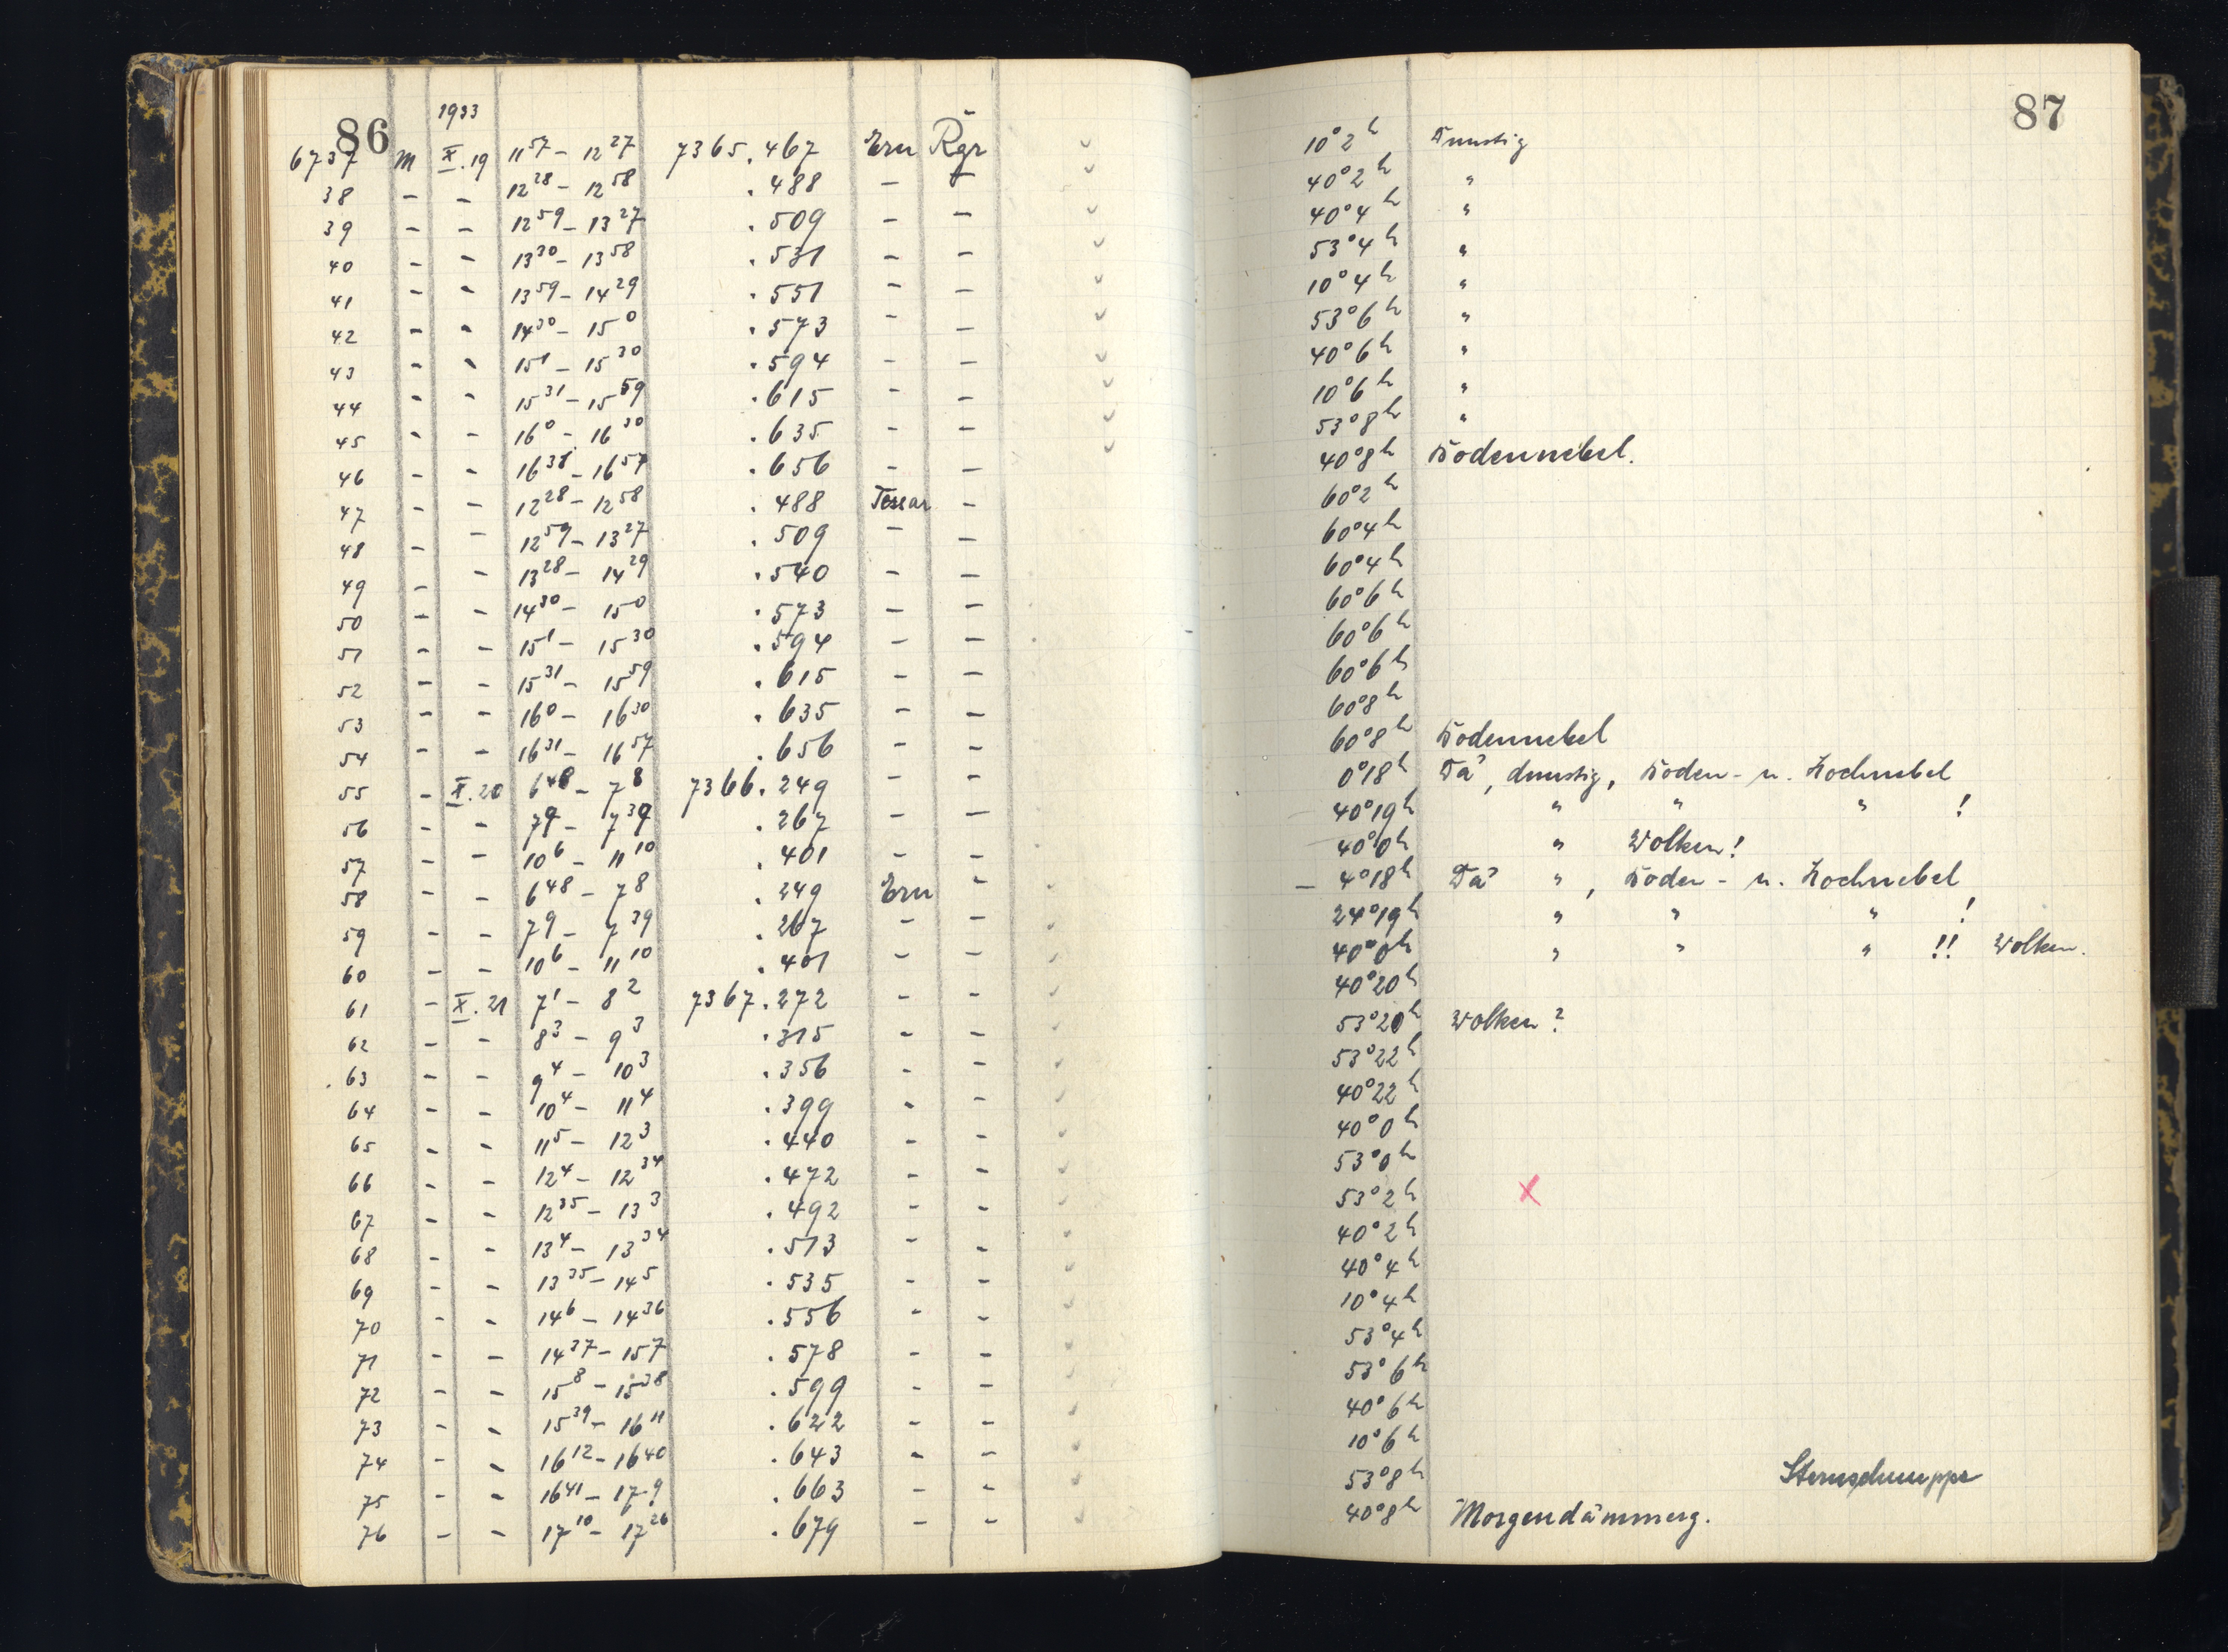 86
1933
6737 M X.19 11 57 – 12 27 7365.467 Ern Rgr
38 – – 12 28 – 12 58 .488 – –
39 – – 12 59 – 13 27 .509 – –
40 – – 13 30 – 13 58 .531 – –
41 – – 13 59 – 14 29 .551 – –
42 – – 14 30 – 15 0 .573 – –
43 – – 15 1 – 15 30 .594 – –
44 – – 15 31 – 15 59 .615 – –
45 – – 16 0 – 16 30 .635 – –
46 – – 16 31 – 16 57 .656 – –
47 – – 12 28 – 12 58 .488 Tessar –
48 – – 12 59 – 13 27 .509 – –
49 – – 13 28 – 14 29 .540 – –
50 – – 14 30 – 15 0 .573 – –
51 – – 15 1 – 15 30 .594 – –
52 – – 15 31 – 15 59 .615 – –
53 – – 16 0 – 16 30 .635 – –
54 – – 16 31 – 16 57 .656 – –
55 – X.20 6 48 – 7 8 7366.249 – –
56 – – 7 9 – 7 39 .267 – –
57 – – 10 6 – 11 10 .401 – –
58 – – 6 48 – 7 8 .249 Ern –
59 – – 7 9 – 7 39 .267 – –
60 – – 10 6 – 11 10 .401 – –
61 – X.21 7 1 – 8 2 7367.272 – –
62 – – 8 3 – 9 3 .315 – –
63 – – 9 4 – 10 3 .356 – –
64 – – 10 4 – 11 4 .399 – –
65 – – 11 5 – 12 3 .440 – –
66 – – 12 4 – 12 34 .472 – –
67 – – 12 35 – 13 3 .492 – –
68 – – 13 4 – 13 34 .513 – –
69 – – 13 35 – 14 5 .535 – –
70 – – 14 6 – 14 36 .556 – –
71 – – 14 37 – 15 7 .578 – –
72 – – 15 8 – 15 38 .599 – –
73 – – 15 39 – 16 11 .622 – –
74 – – 16 12 – 16 40 .643 – –
75 – – 16 41 – 17 9 .663 – –
76 – – 17 10 – 17 26 .679 – –
87
10° 2h Dunstig
40° 2h "
40° 4h "
53° 4h "
10° 4h "
53° 6h "
40° 6h "
10° 6h "
53° 8h "
40° 8h Bodennebel.
60° 2h
60° 4h
60° 4h
60° 6h
60° 6h
60° 6h
60° 8h
60° 8h Bodennebel
0° 18h Dä, dunstig, Boden- u. Hochnebel
40° 19h " " " !
40° 0h " Wolken!
– 4° 18h Dä " , Boden- u. Hochnebel
24° 19h " " " !
40° 0h " " " !! Wolken.
40° 20h
53° 20h Wolken?
53° 22h
40° 22h
40° 0h
53° 0h
53° 2h X
40° 2h
40° 4h
10° 4h
53° 4h
53° 6h
40° 6h
10° 6h
53° 8h Sternschnuppe
40° 8h Morgendämmerg.